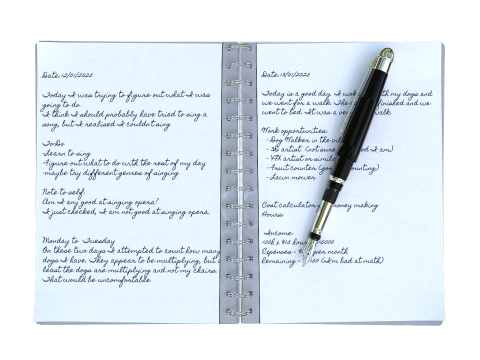 Date: 12/01/2025
Today I was trying to figure out what I was
going to do.
I think I should probably have tried to sing a
song, but I realised I couldn't sing
ToDo
Learn to sing
Figure out what to do with the rest of my day
maybe try different genres of singing
Note to self:
Am I any good at singing opera?
I just checked, I am not good at singing opera.
Monday to Tuesday
On these two days I attempted to count how many
dogs I have. They appear to be multiplying, but at
least the dogs are multiplying and not my chairs.
That would be uncomfortable
Date: 13/01/2025
Today is a good day. I with my dogs and
we went for a walk. finished and we
went to bed. It was a walk.
Work opportunities:
- Dog Walker in the
- artist (not sure I am)
- artist or
- Fruit counter counting)
- Lawn mower
Cost calculator money making
Hours:
Income:
100h x $15 15000
Expenses = per month
Remaining = (I'm bad at math)